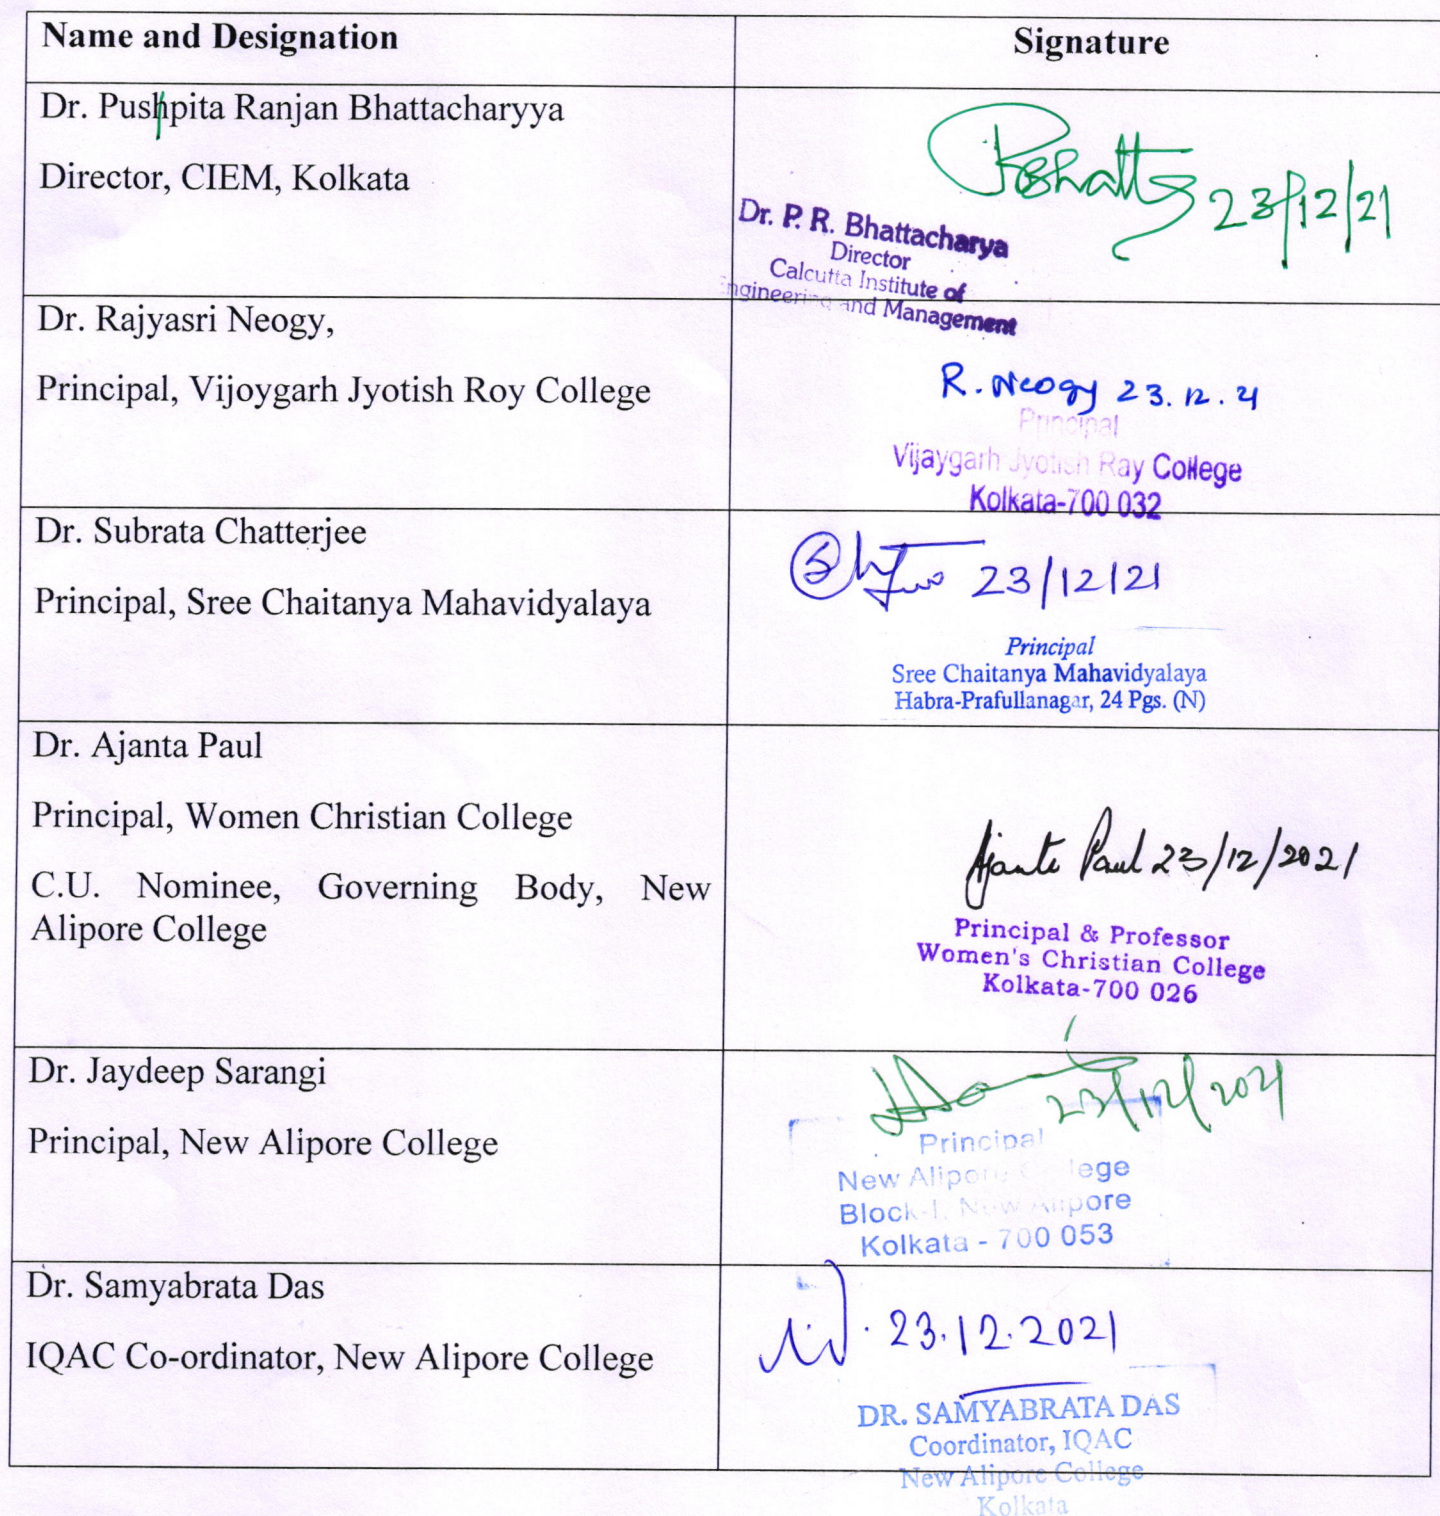 Name and Designation
Signature
Dr. Pushpita Ranjan Bhattacharyya
Director, CIEM, Kolkata
23/12/21
Dr. P. R. Bhattacharya
Director
Calcutta Institute of
Engineering and Management
Dr. Rajyasri Neogy,
Principal, Vijoygarh Jyotish Roy College
R. Neogy 23.12.21
Principal
Vijaygarh Jyotish Ray College
Kolkata-700 032
Dr. Subrata Chatterjee
Principal, Sree Chaitanya Mahavidyalaya
23/12/21
Principal
Sree Chaitanya Mahavidyalaya
Habra-Prafullanagar, 24 Pgs. (N)
Dr. Ajanta Paul
Principal, Women Christian College
C.U. Nominee, Governing Body, New
Alipore College
Ajanta Paul 23/12/2021
Principal & Professor
Women's Christian College
Kolkata-700 026
Dr. Jaydeep Sarangi
Principal, New Alipore College
23/12/2021
Principal
New Alipore College
Block-L, New Alipore
Kolkata - 700 053
Dr. Samyabrata Das
IQAC Co-ordinator, New Alipore College
23.12.2021
DR. SAMYABRATA DAS
Coordinator, IQAC
New Alipore College
Kolkata